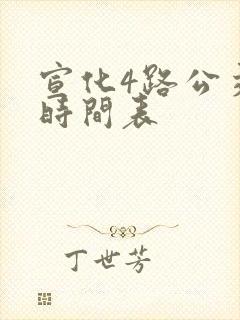 宣化4路公交
時間表
丁世芳